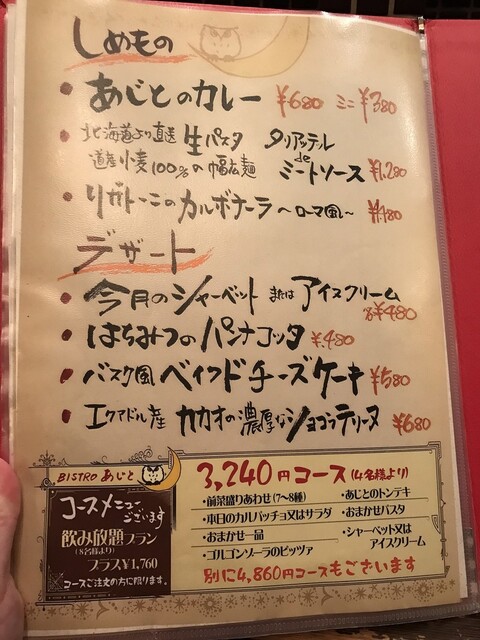 しめもの
• あじとのカレー ¥680 ミニ ¥380
• 北海道より直送 生パスタ タリアッテル
道産小麦100%の幅広麺 de ミートソース ¥1,280
• リガトーニのカルボナーラ ～ローマ風～ ¥1,180
デザート
• 今月のシャーベット または アイスクリーム
各¥480
• はちみつのパンナコッタ ¥480
• バスク風 ベイクドチーズケーキ ¥580
• エクアドル産 カカオの濃厚なショコラテリーヌ ¥680
BISTRO あじと
コースメニュー
ございます
飲み放題プラン
(8名様より)
プラス¥1,760
コースご注文の方に限ります。
3,240円コース(4名様より)
・前菜盛りあわせ(7〜8種)
・本日のカルパッチョ又はサラダ
・おまかせ一品
・ゴルゴンゾーラのピッツァ
・あじとのトンテキ
・おまかせパスタ
・シャーベット又は
アイスクリーム
別に4,860円コースもございます